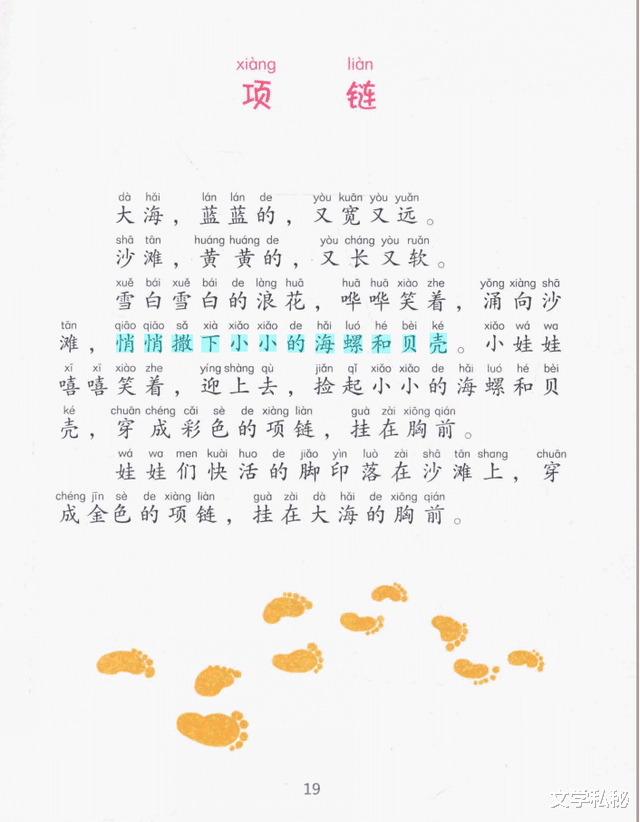 xiàng liàn
项 链
dà hǎi lán lán de yòu kuān yòu yuǎn
大海，蓝蓝的，又宽又远。
shā tān huáng huáng de yòu cháng yòu ruǎn
沙滩，黄黄的，又长又软。
xuě bái xuě bái de làng huā huā huā xiào zhe yǒng xiàng shā
雪白雪白的浪花，哗哗笑着，涌向沙
tān qiāo qiāo sǎ xià xiǎo xiǎo de hǎi luó hé bèi ké xiǎo wá wa
滩，悄悄撒下小小的海螺和贝壳。小娃娃
xī xī xiào zhe yíng shàng qù jiǎn qǐ xiǎo xiǎo de hǎi luó hé bèi
嘻嘻笑着，迎上去，捡起小小的海螺和贝
ké chuān chéng cǎi sè de xiàng liàn guà zài xiōng qián
壳，穿成彩色的项链，挂在胸前。
wá wa men kuài huo de jiǎo yìn luò zài shā tān shang chuān
娃娃们快活的脚印落在沙滩上，穿
chéng jīn sè de xiàng liàn guà zài dà hǎi de xiōng qián
成金色的项链，挂在大海的胸前。
19
文学私秘